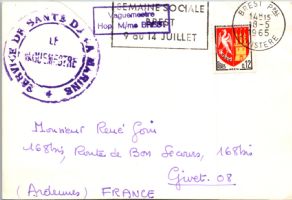 SERVICE DE SANTÉ DE LA MARINE
LE
VAGUEMESTRE
Vaguemestre
Hop. M/me BREST
SEMAINE SOCIALE
BREST
9 au 14 JUILLET
BREST Pal
14H15
8-5
1965
FINISTERE
0,12
Monsieur René Goin
168bis, Route de Bon Secours, 168bis
Givet. 08
(Ardennes) FRANCE